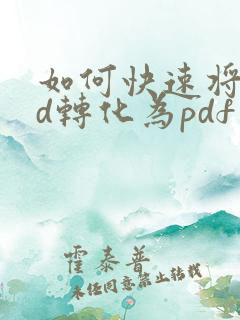 如何快速将
d轉化為pdf
霍泰普
未经同意禁止转载